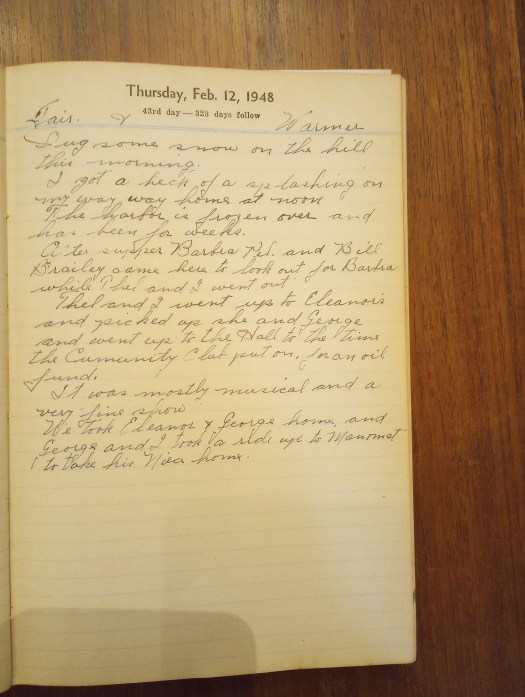 Thursday, Feb. 12, 1948
43rd day — 323 days follow
Fair. & Warmer
Dug some snow on the hill
this morning.
I got a heck of a splashing on
my way way home at noon
The harbor is frozen over and
has been for weeks.
After supper Barbra Pet. and Bill
Brailey came here to look out for Barbra
while Thel and I went out.
Thel and I went up to Eleanor's
and picked up she and George
and went up to the Hall to the time
the Cumunity Club put on, for an oil
fund.
It was mostly musical and a
very fine show
We took Eleanor & George home, and
George and I took a ride up to Manomet
to take his Niece home.